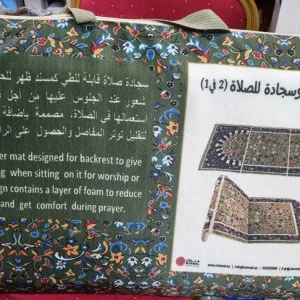 سجادة صلاة قابلة للطي كمسند ظهر
شعور عند الجلوس عليها من اجل
ستعمالها في الصلاة. مصممة بإضافة
لتقليل توتر المفاصل والحصول على
er mat designed for backrest to give
when sitting on it for worship or
gn contains a layer of foam to reduce
and get comfort during prayer.
وسجادة للصلاة (2 في 1)